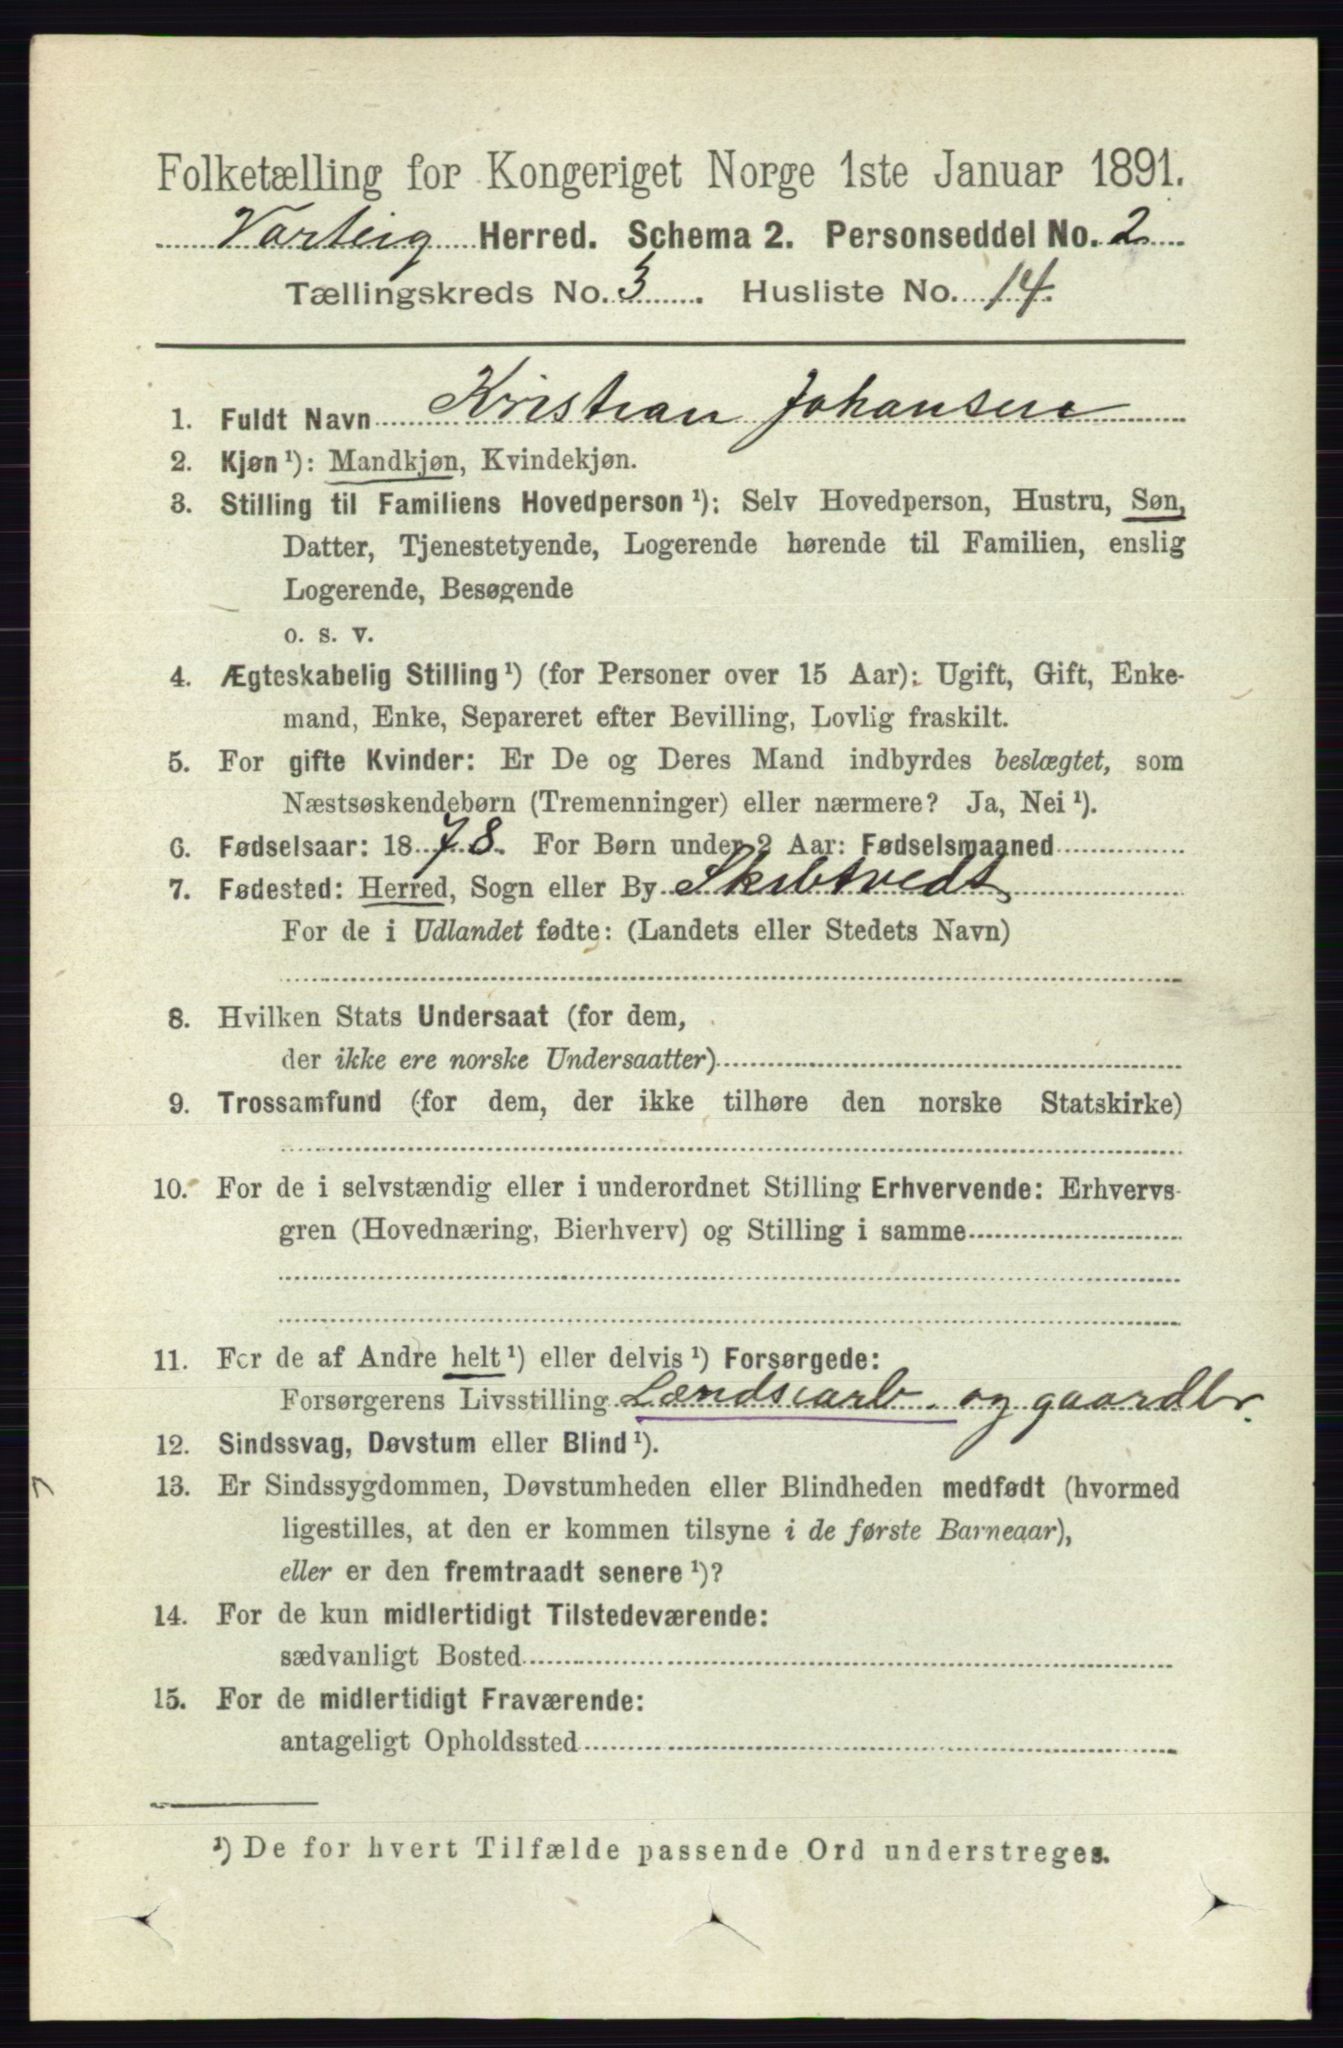 Folketælling for Kongeriget Norge 1ste Januar 1891.
Varteig Herred. Schema 2. Personseddel No. 2
Tællingskreds No. 3. Husliste No. 14.
1. Fuldt Navn Kristian Johansen
2. Kjøn ¹): Mandkjøn, Kvindekjøn.
3. Stilling til Familiens Hovedperson ¹): Selv Hovedperson, Hustru, Søn,
Datter, Tjenestetyende, Logerende hørende til Familien, enslig
Logerende, Besøgende
o. s. v.
4. Ægteskabelig Stilling ¹) (for Personer over 15 Aar): Ugift, Gift, Enke-
mand, Enke, Separeret efter Bevilling, Lovlig fraskilt.
5. For gifte Kvinder: Er De og Deres Mand indbyrdes beslægtet, som
Næstsøskendebørn (Tremenninger) eller nærmere? Ja, Nei ¹).
6. Fødselsaar: 1878. For Børn under 2 Aar: Fødselsmaaned
7. Fødested: Herred, Sogn eller By Skibtvedt
For de i Udlandet fødte: (Landets eller Stedets Navn)
8. Hvilken Stats Undersaat (for dem,
der ikke ere norske Undersaatter)
9. Trossamfund (for dem, der ikke tilhøre den norske Statskirke)
10. For de i selvstændig eller i underordnet Stilling Erhvervende: Erhvervs-
gren (Hovednæring, Bierhverv) og Stilling i samme
11. For de af Andre helt ¹) eller delvis ¹) Forsørgede:
Forsørgerens Livsstilling Lændsearb. og gaardbr.
12. Sindssvag, Døvstum eller Blind ¹).
13. Er Sindssygdommen, Døvstumheden eller Blindheden medfødt (hvormed
ligestilles, at den er kommen tilsyne i de første Barneaar),
eller er den fremtraadt senere ¹)?
14. For de kun midlertidigt Tilstedeværende:
sædvanligt Bosted
15. For de midlertidigt Fraværende:
antageligt Opholdssted
¹) De for hvert Tilfælde passende Ord understreges.